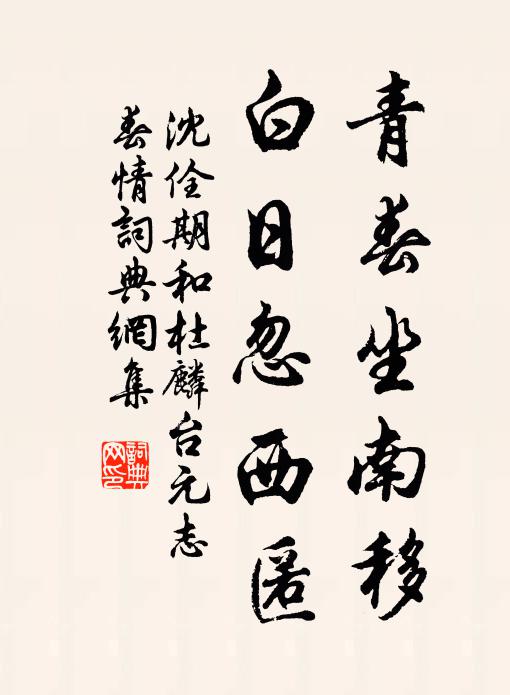 青春坐南移
白日忽西匿
沈佺期和杜麟台元志
春情詞典網集
詞典
网印